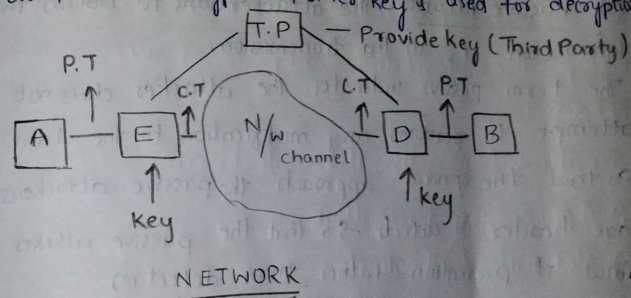 key is used for decryptio
T.P — Provide key (Third Party)
P.T C.T C.T P.T
A E N/W channel D B
key key
NETWORK